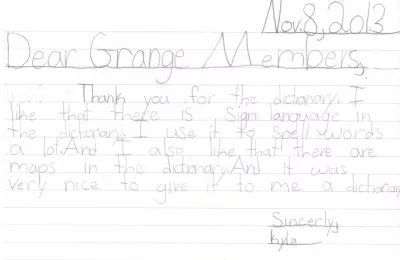 Nov. 8, 2013
Dear Grange Members,
Thank you for the dictionary. I
like that there is sign language in
the dictionary. I use it to spell words
a lot. And I also like that there are
maps in the dictionary. And it was
very nice to give it to me a dictionary
Sincerly,
Kyla